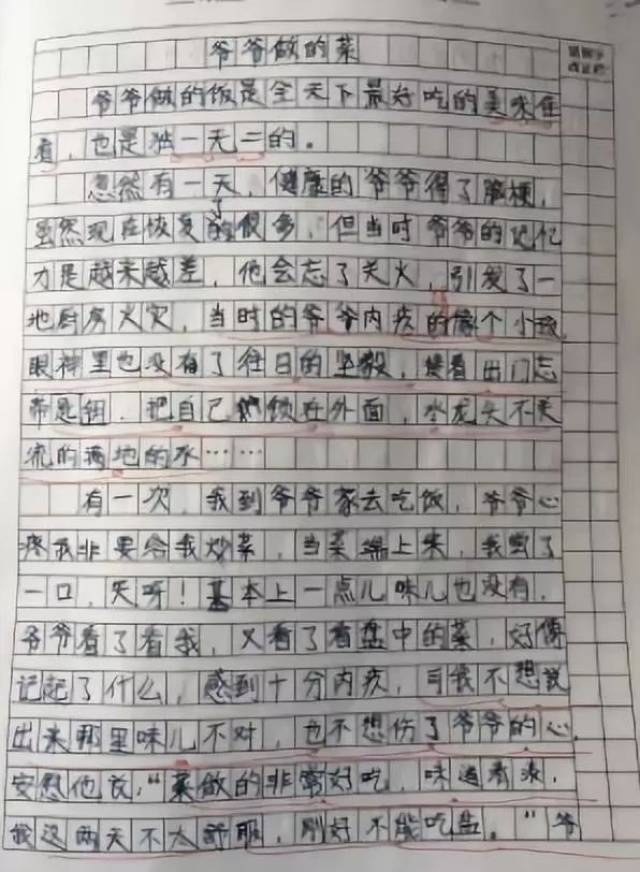 爷爷做的菜
爷爷做的饭是全天下最好吃的美味佳
肴，也是独一无二的。
忽然有一天，健康的爷爷得了脑梗，
虽然现在恢复了的很多，但当时爷爷的记忆
力是越来越差，他会忘了关火，引发了一
地厨房火灾，当时的爷爷内疚的像个小孩
眼神里也没有了往日的坚毅，接着出门忘
带是钥，把自己锁在外面，水龙头不关
流的满地的水……
有一次，我到爷爷家去吃饭，爷爷心
疼我非要给我炒菜，当菜端上来，我尝了
一口，天呀！基本上一点儿味儿也没有，
爷爷看了看我，又看了看盘中的菜，好像
记起了什么，感到十分内疚，可我不想说
出来那里味儿不对，也不想伤了爷爷的心，
安慰他说：“菜做的非常好吃，味道清淡，
我这两天不太舒服，刚好不能吃盐。”爷